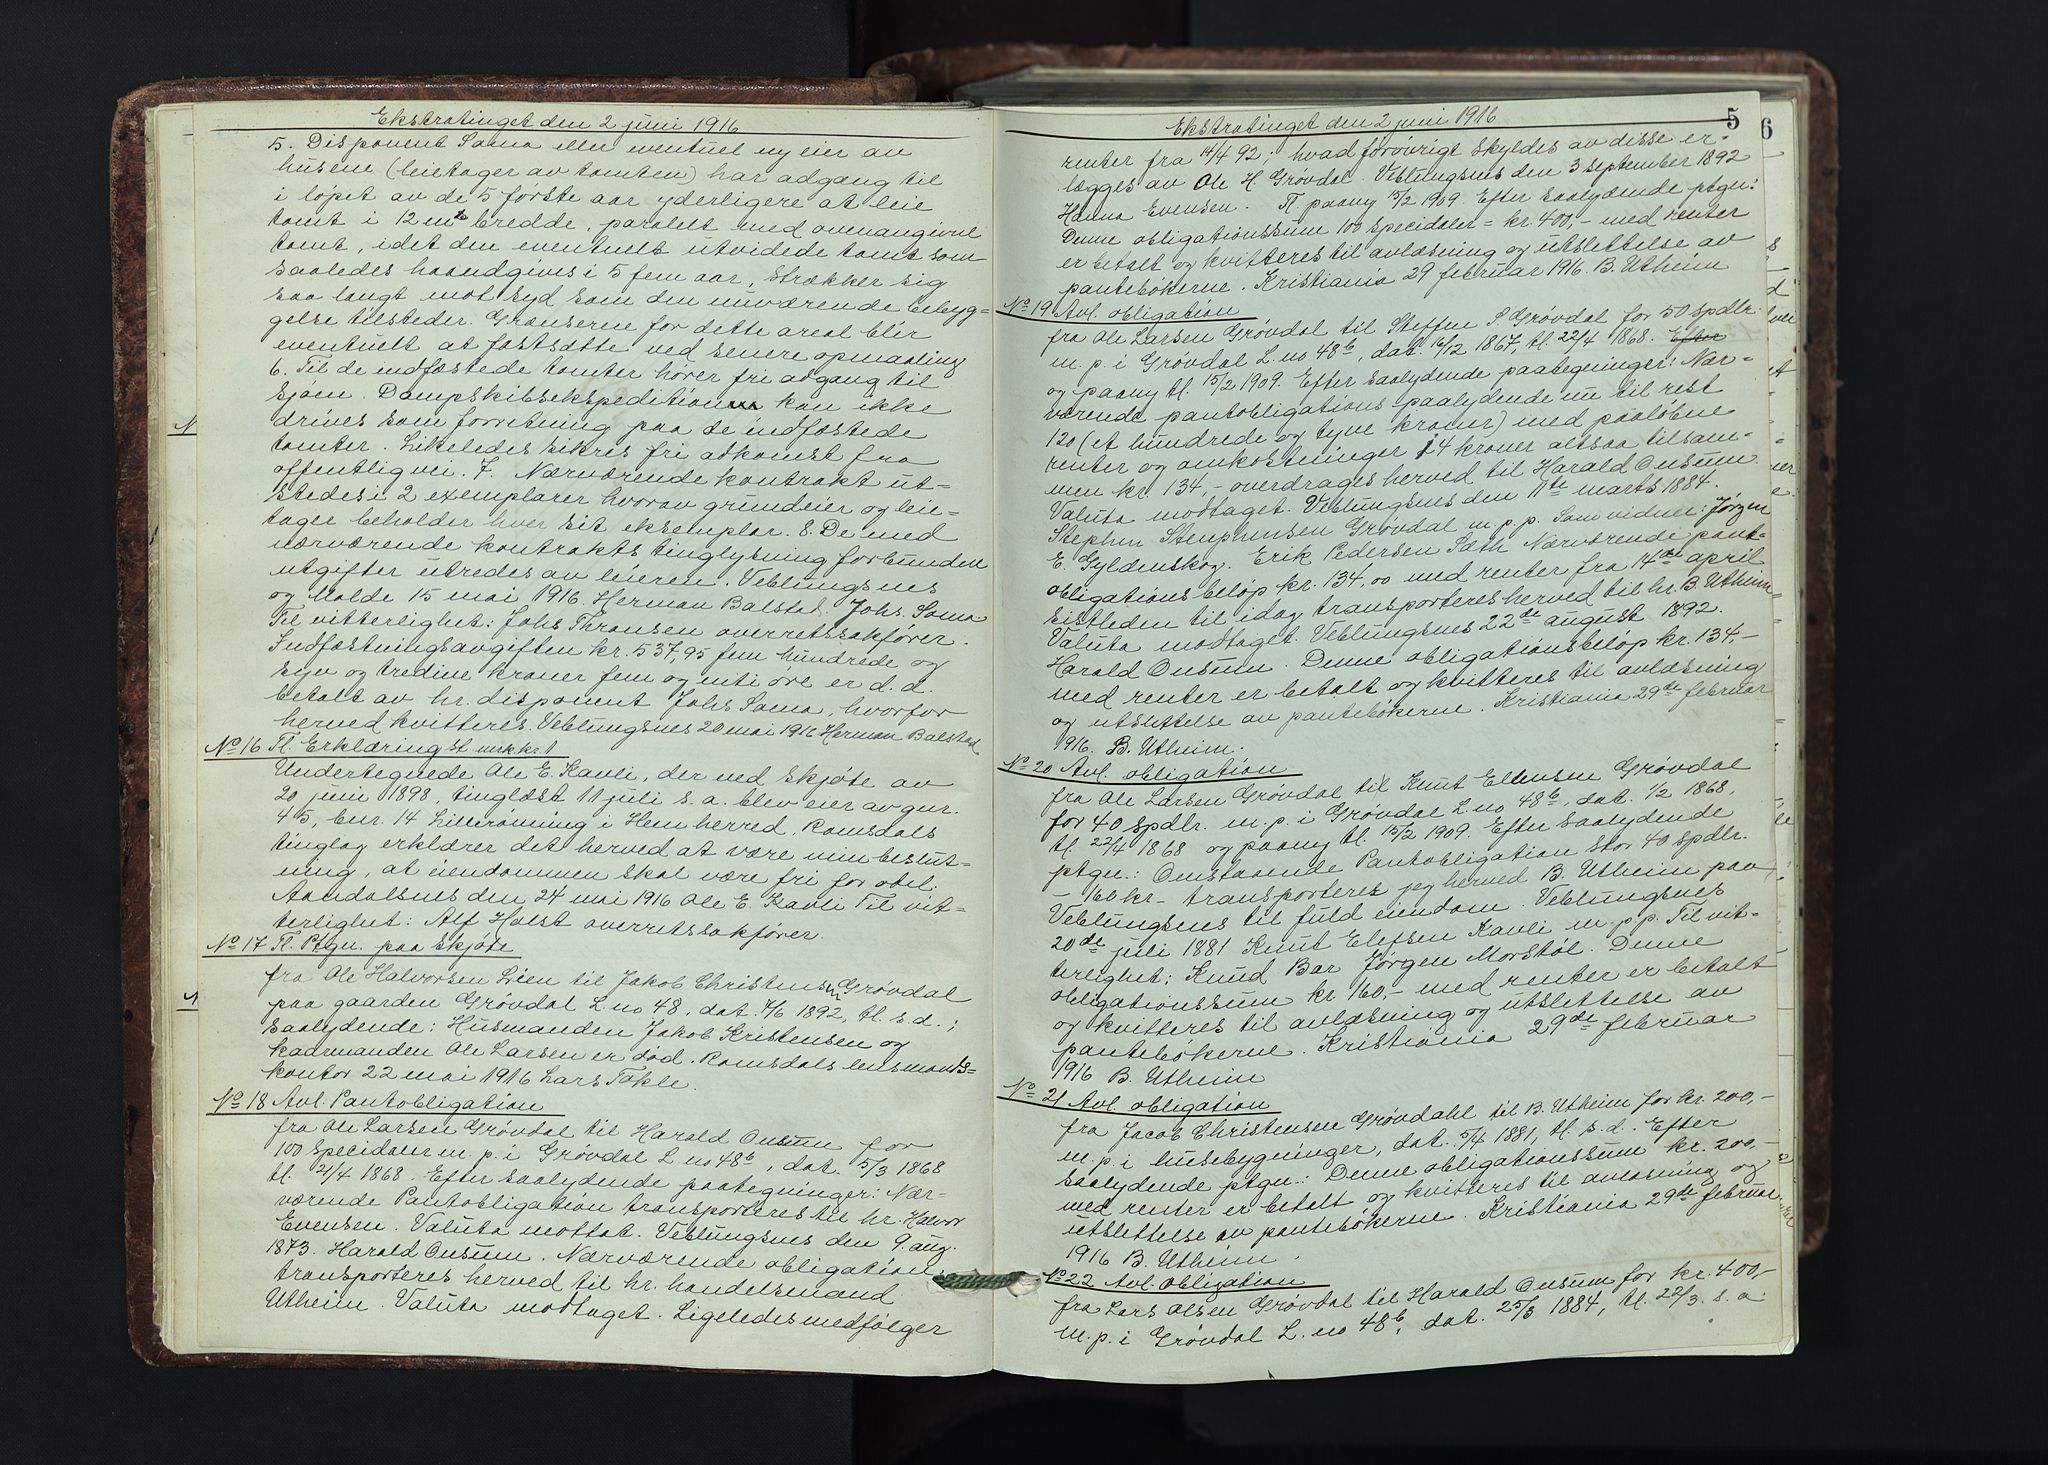 Ekstratinget den 2 juni 1916
5. Disponent Sama eller eventuel ny eier av
husene (leietager av tomten) har adgang til
i løpet av de 5 første aar yderligere at leie
tomt i 12 m bredde, paralelt med ovenangivne
tomt, idet den eventuelt utvidede tomt som
saaledes haandgives i 5 fem aar, strækker sig
saa langt mot syd som den nuværende bebyg-
gelse tilsteder. Grænserne for dette areal blir
eventuelt at fastsætte ved senere opmaaling
6. Til de indfæstede tomter hører fri adgang til
sjøen. Dampskibsekspedition kan ikke
drives som forretning paa de indfæstede
tomter. Likeledes sikres fri adkomst fra
offentlig vei. 7. Nærværende kontrakt ut-
stedes i 2 exemplarer hvorav grundeier og leie-
tager beholder hver sit eksemplar. 8. De med
nærværende kontrakts tinglysning forbundne
utgifter utredes av leieren. Veblungsnes
og Molde 15 mai 1916. Herman Balstad. Johs. Sama
Til vitterlighet: Johs Thransen overretssakfører.
Indfæstningsavgiften kr. 537,95 fem hundrede og
syv og tredive kroner fem og niti øre er d.d.
betalt av hr. disponent Johs Sama, hvorfor
herved kvitteres. Veblungsnes 20 mai 1916 Herman Balstad
No 16 Tl. Erklæring st. merket
Undertegnede Ole E. Kavli, der ved skjøte av
20 juni 1898, tinglæst 11 juli s.a. blev eier av gnr.
45, bnr. 14 Lilleromning i Hen herred, Romsdals
tinglag erklærer det herved at være min beslut-
ning, at eiendommen skal være fri for odel.
Aandalsnes den 24 mai 1916 Ole E. Kavli Til vit-
terlighet: Alf Holst overretssakfører.
No 17 Tl. Ptgn. paa skjøte
fra Ole Halvorsen Lien til Jakob Christensen Grøvdal
paa gaarden Grøvdal L. no 48, dat. 7/6 1892, tl. s.d.;
saalydende: Husmanden Jakob Kristensen og
kaarmanden Ole Larsen er død. Romsdals lensmands-
kontor 22 mai 1916 Lars Tokle.
No 18 Avl. Pantobligation
fra Ole Larsen Grøvdal til Harald Onsum for
100 specidaler m. p. i Grøvdal L no 48b, dat. 5/3 1868
tl. 21/4 1868. Efter saalydende paategninger: Nær-
værende Pantobligation transporteres til hr. Halvor
Evensen. Valuta mottat. Veblungsnes den 9. aug.
1873. Harald Onsum. Nærværende obligation
transporteres herved til hr. handelsmand
Utheim. Valuta modtaget. Ligeledes medfølger
Ekstratinget den 2 juni 1916
5
6
renter fra 14/4 92; hvad forøvrigt skyldes av disse er-
lægges av Ole H. Grøvdal. Veblungsnes den 3 september 1892
Hanna Evensen. Tl. paany 15/2 1909. Efter saalydende ptgn:
Denne obligationssum 100 specidaler = kr. 400,- med renter
er betalt og kvitteres til avlæsning og utslettelse av
pantebøkerne. Kristiania 29 februar 1916. B. Utheim
No 19 Avl. obligation
fra Ole Larsen Grøvdal til Steffen S Grøvdal for 50 spdlr.
m. p. i Grøvdal L. no 48b, dat. 16/12 1867, tl. 22/4 1868. Efter
og paany tl. 15/2 1909. Efter saalydende paategninger: Nær-
værende pantobligations paalydende nu til rest
120 (et hundrede og tyve kroner) med paaløbne
renter og omkostninger 14 kroner altsaa tilsam-
men kr. 134 - overdrages herved til Harald Onsum.
Valuta modtaget. Veblungsnes den 11te marts 1884.
Stephen Stemphensen Grøvdal m. p. p. Som vidner: Jørgen
E. Gyldenskog. Erik Pedersen Sæth Nærværende pant-
obligations beløp kr. 134,00 med renter fra 14de april
sistleden til idag transporteres herved til hr. B. Utheim
Valuta modtaget. Veblungsnes 22de august 1892.
Harald Onsum. Denne obligationsbeløp kr. 134,-
med renter er betalt og kvitteres til avlæsning
og utslettelse av pantebøkerne. Kristiania 29de februar
1916. B. Utheim.
No 20 Avl. obligation
fra Ole Larsen Grøvdal til Knut Ellensen Grøvdal
for 40 spdlr. m. p. i Grøvdal L. no 48b, dat. 1/2 1868,
tl. 22/4 1868 og paany tl. 15/2 1909. Efter saalydende
ptgn.: Omstaaende Pantobligation stor 40 spdlr.
- 160 kr - transporteres jeg herved B. Utheim paa
Veblungsnes til fuld eiendom. Veblungsnes
20de juli 1881 Knut Elefsen Kavli m. p. p. Til vit-
terlighet: Knud Bar Jørgen Morstøl. Denne
obligationssum kr. 160,- med renter er betalt
og kvitteres til avlæsning og utslettelse av
pantebøkerne. Kristiania 29de februar
1916 B. Utheim
No 21 Avl. obligation
fra Jacob Christensen Grøvdahl til B. Utheim for kr. 200,-
m. p. i husebygninger, dat. 5/4 1881, tl. s. d. Efter
saalydende ptgn.: Denne obligationssum kr. 200,-
med renter er betalt og kvitteres til avlæsning og
utslettelse av pantebøkerne. Kristiania 29de februar
1916 B. Utheim.
No 22 Avl. obligation
fra Lars Olsen Grøvdal til Harald Onsum for kr. 400,-
m. p. i Grøvdal L. no 48b, dat. 25/3 1884, tl. 22/3. s. a.